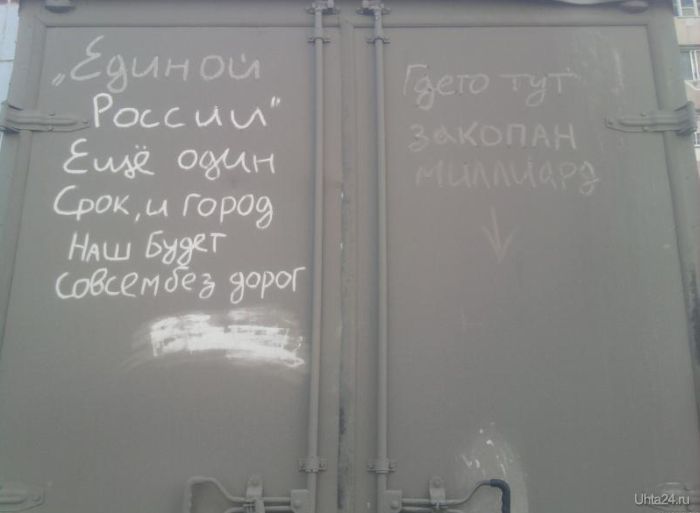 „Единой
России"
Ещё один
Срок, и город
наш будет
совсем без дорог
Гдето тут
закопан
миллиард
Uhta24.ru